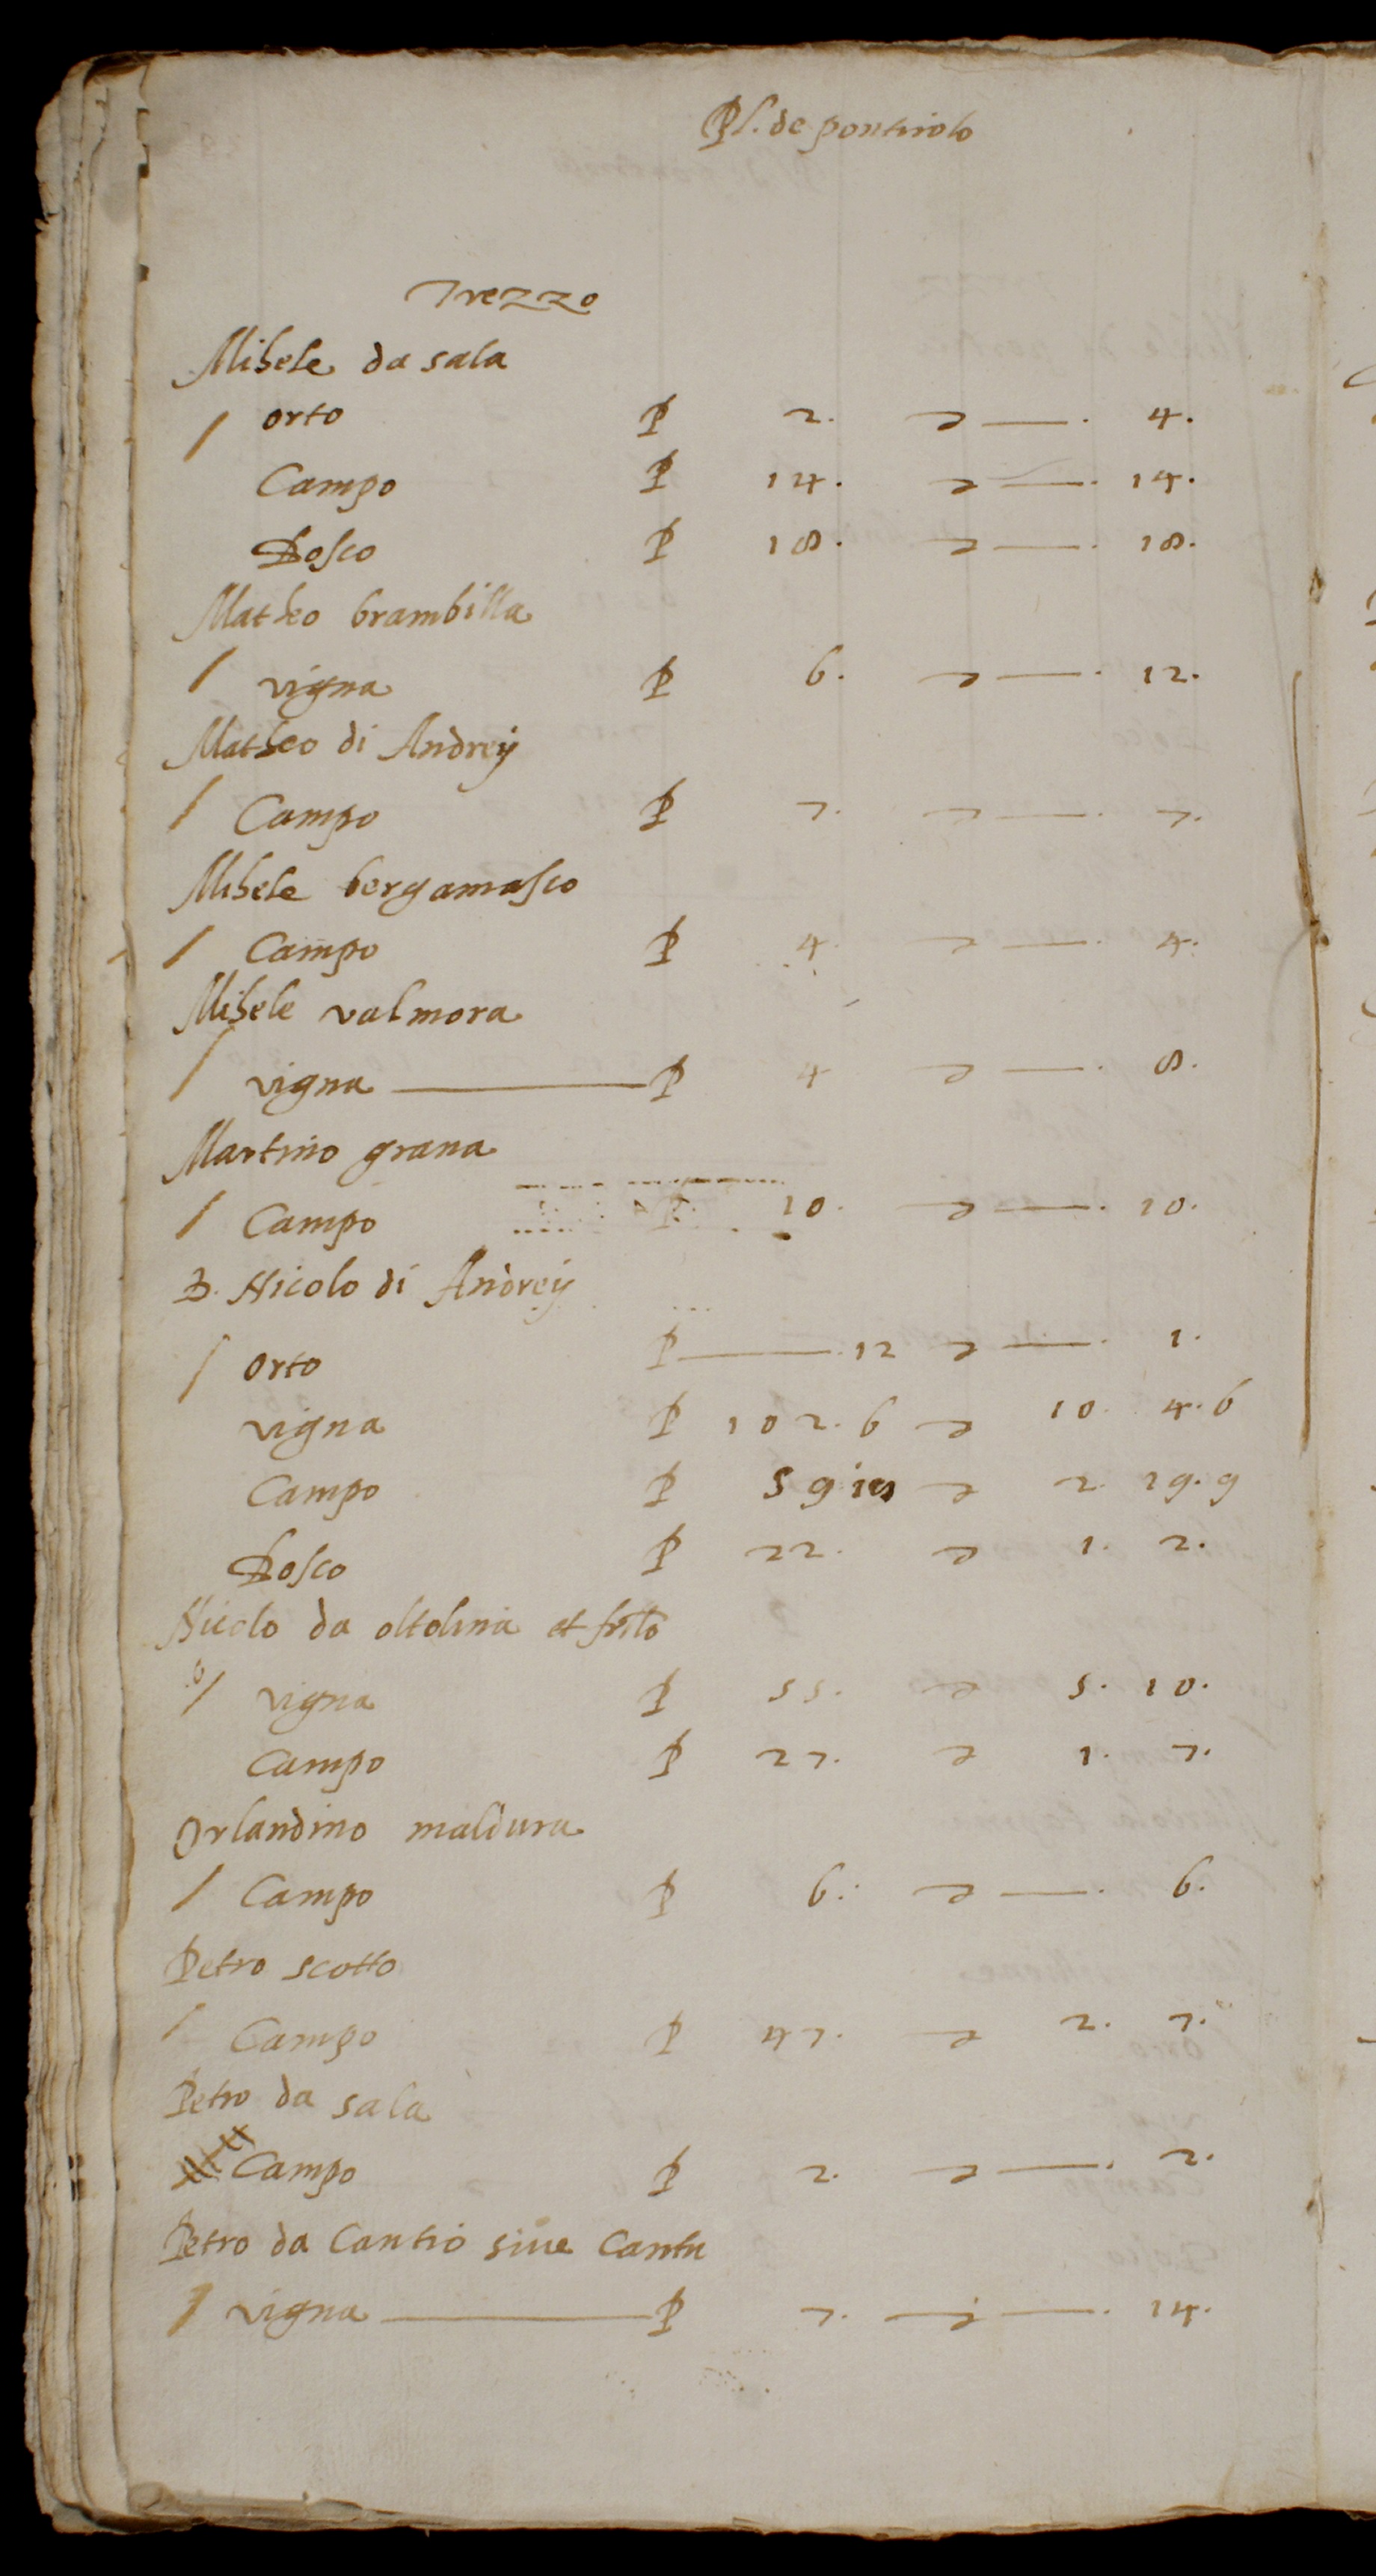 Pl. de pontirolo
Trezzo
Mihele da sala
/ orto P 2. L — . 4.
Campo P 14. L — . 14.
Bosco P 18. L — . 18.
Matheo brambilla
/ vigna P 6. L — . 12.
Matheo di Andrey
/ Campo P 7. L — . 7.
Mihele bergamasco
/ Campo P 4. L — . 4.
Mihele valmora
/ vigna — P 4 L — . 8.
Martino grana
/ Campo P 10. L — . 10.
B. Nicolo di Andrey
/ orto P — . 12 L — . 1.
vigna P 102. 6 L 10. 4. 6
Campo P 59 L 2. 19. 9
Bosco P 22. L 1. 2.
Nicolo da oltolina et frīlo
/ vigna P 55. L 5. 10.
Campo P 27. L 1. 7.
Orlandino maldura
/ Campo P 6. L — . 6.
Petro scotto
/ Campo P 47. L 2. 7.
Petro da sala
Campo P 2. L — . 2.
Petro da Cantio sive Cantu
/ vigna — P 7. L — . 14.